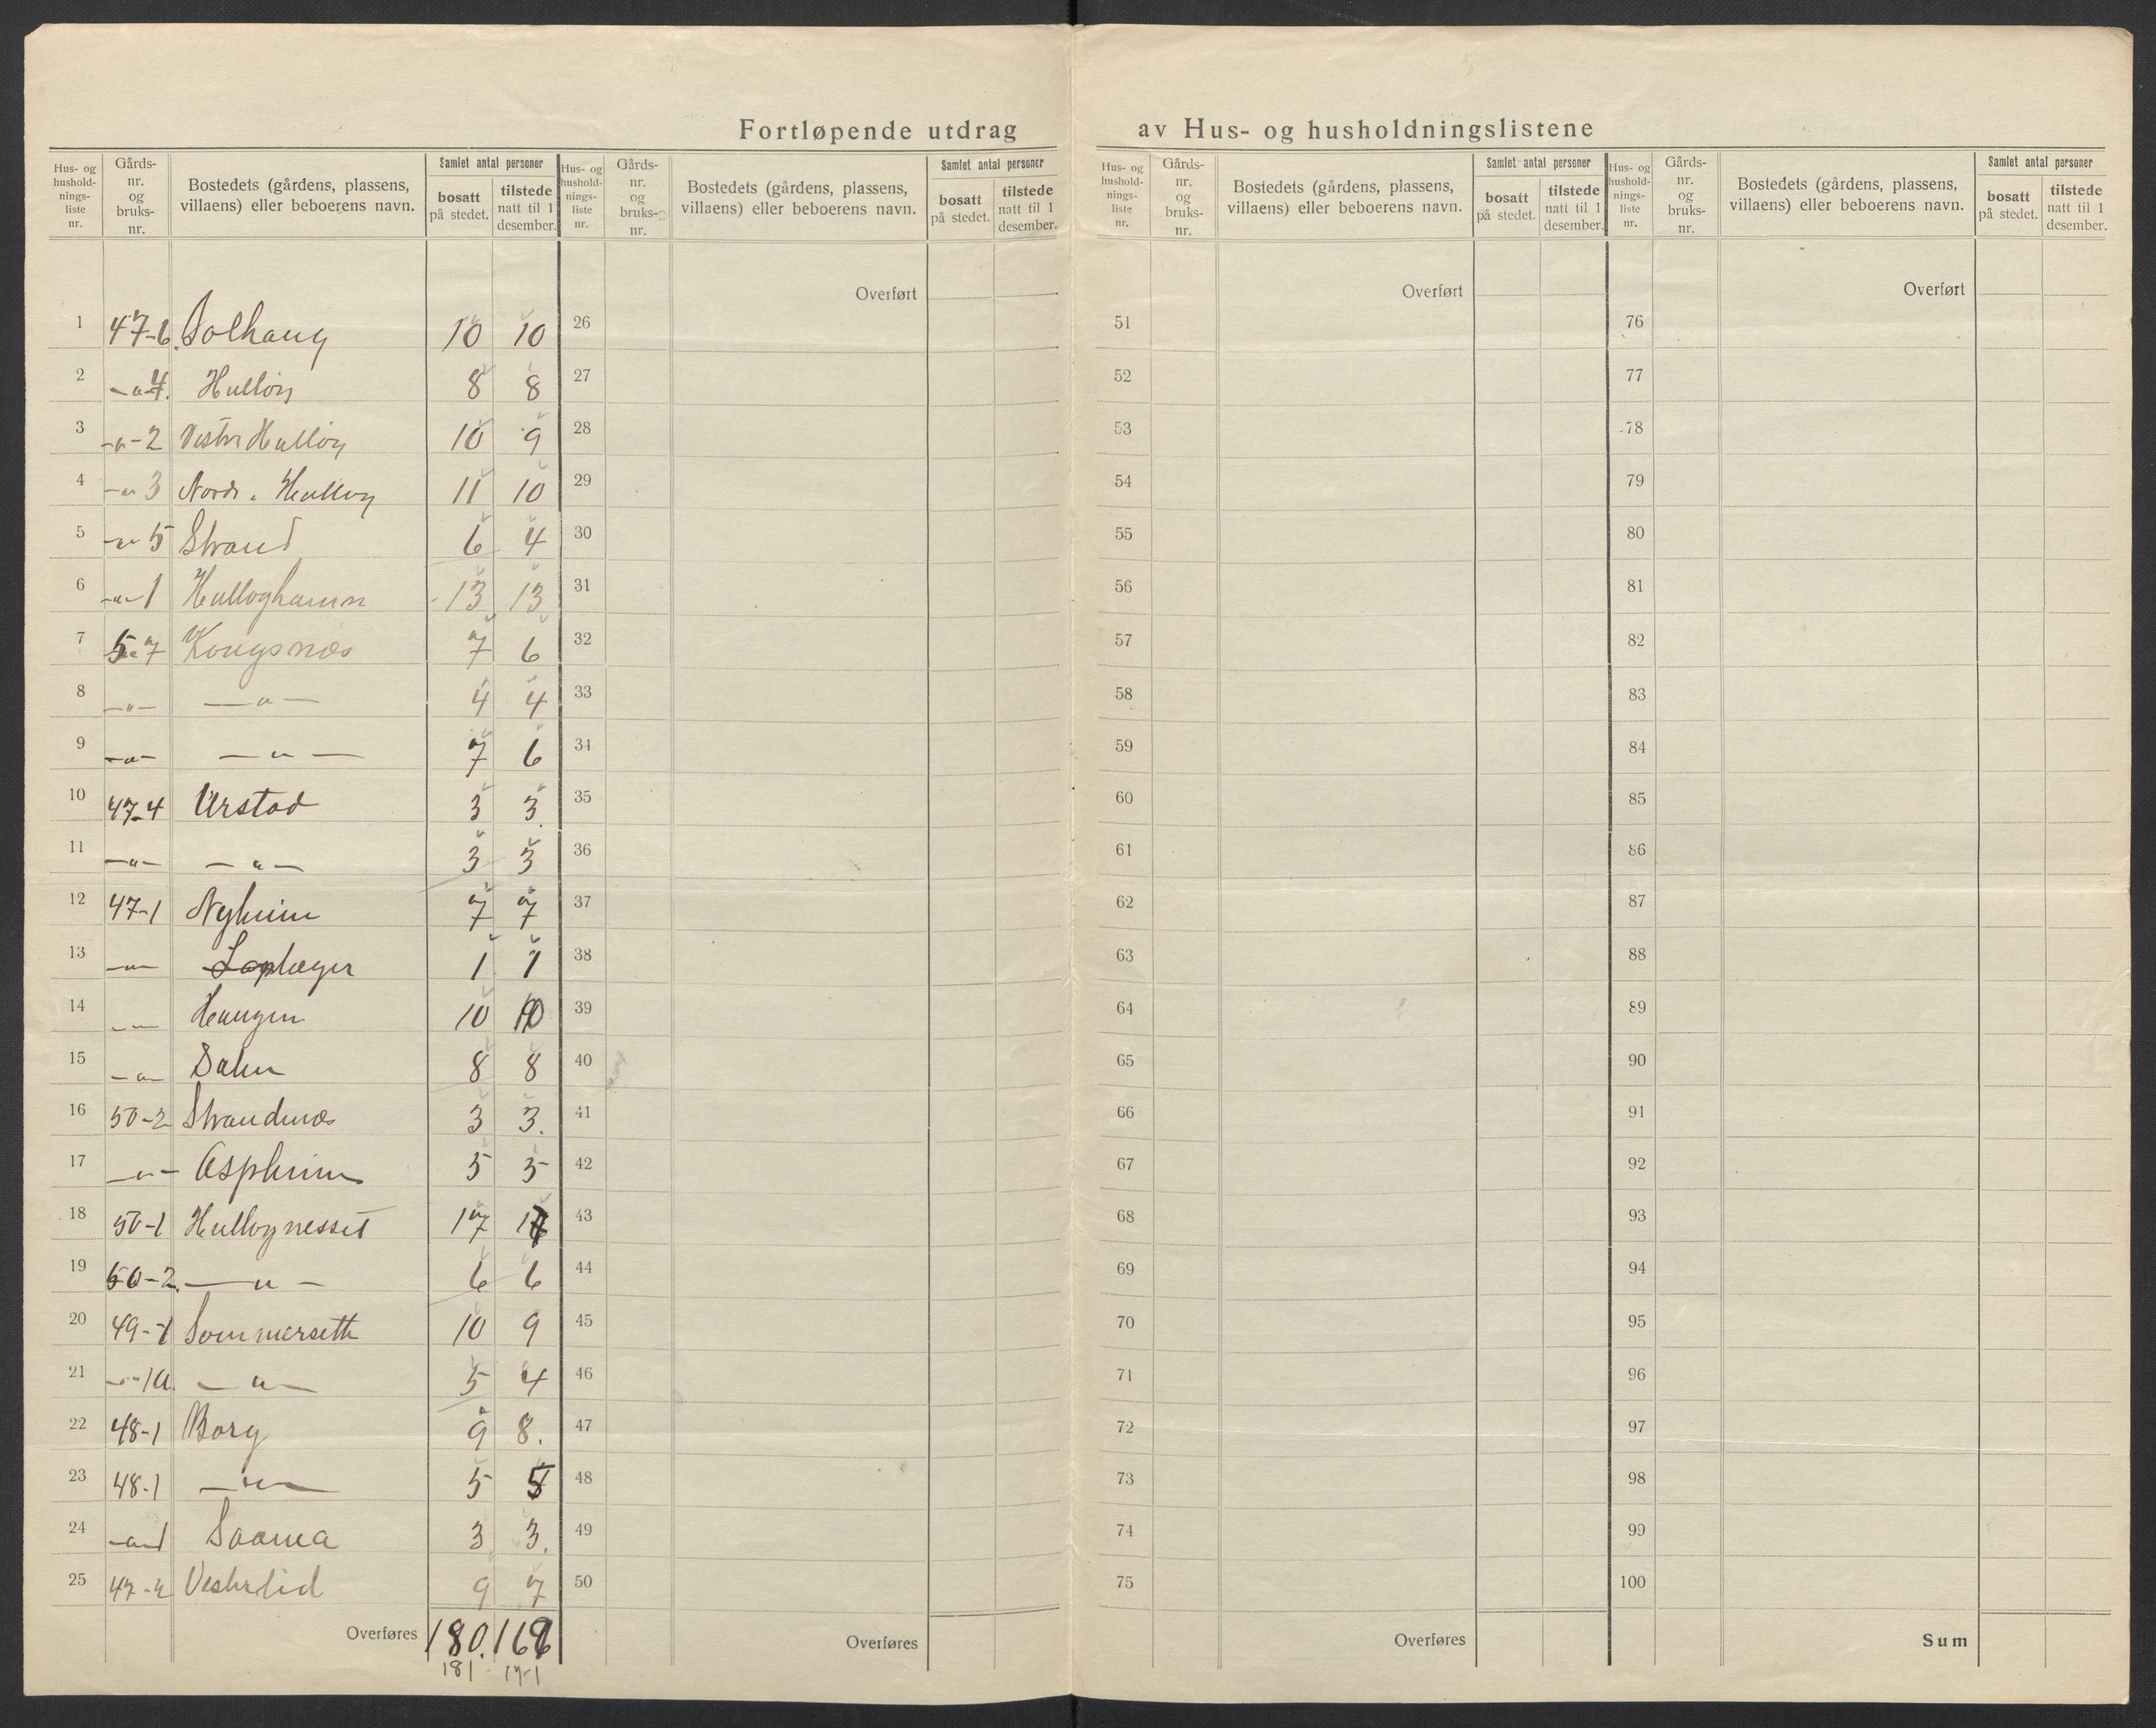 Fortløpende utdrag av Hus- og husholdningslistene
Hus- og husholdnings-liste nr. Gårds-nr. og bruks-nr. Bostedets (gårdens, plassens, villaens) eller beboerens navn. Samlet antal personer bosatt på stedet. tilstede natt til 1 desember.
Hus- og husholdnings-liste nr. Gårds-nr. og bruks-nr. Bostedets (gårdens, plassens, villaens) eller beboerens navn. Samlet antal personer bosatt på stedet. tilstede natt til 1 desember.
Hus- og husholdnings-liste nr. Gårds-nr. og bruks-nr. Bostedets (gårdens, plassens, villaens) eller beboerens navn. Samlet antal personer bosatt på stedet. tilstede natt til 1 desember.
Hus- og husholdnings-liste nr. Gårds-nr. og bruks-nr. Bostedets (gårdens, plassens, villaens) eller beboerens navn. Samlet antal personer bosatt på stedet. tilstede natt til 1 desember.
Overført Overført Overført
1 47-6 Solhaug 10 10 26 51 76
2 -"-4. Hulløy 8 8 27 52 77
3 -"-2 Vestre Hulløy 10 9 28 53 78
4 -"-3 Nordr. Hulløy 11 10 29 54 79
5 -"-5 Strand 6 4 30 55 80
6 -"-1 Hulløyhamn 13 13 31 56 81
7 Kongsnes 7 6 32 57 82
8 -"- -"- 4 4 33 58 83
9 -"- -"- 7 6 34 59 84
10 47-4 Urstad 3 3 35 60 85
11 -"- -"- 3 3 36 61 86
12 47-1 Nyheim 7 7 37 62 87
13 -"- Laplæger 1 1 38 63 88
14 -"- Haugen 10 10 39 64 89
15 -"- Dalen 8 8 40 65 90
16 50-2 Strandnæs 3 3. 41 66 91
17 -"- Aspheim 5 5 42 67 92
18 50-1 Hulløynesset 17 43 68 93
19 50-2. -"- 6 6 44 69 94
20 49-1 Sommersette 10 9 45 70 95
21 -"-1a. -"- 5 4 46 71 96
22 48-1 Borg 9 8. 47 72 97
23 48-1 -"- 5 5 48 73 98
24 -"-1 Saarna 3 3. 49 74 99
25 47-2 Vestrlid 9 7 50 75 100
Overføres 180. Overføres Overføres Sum
181 171